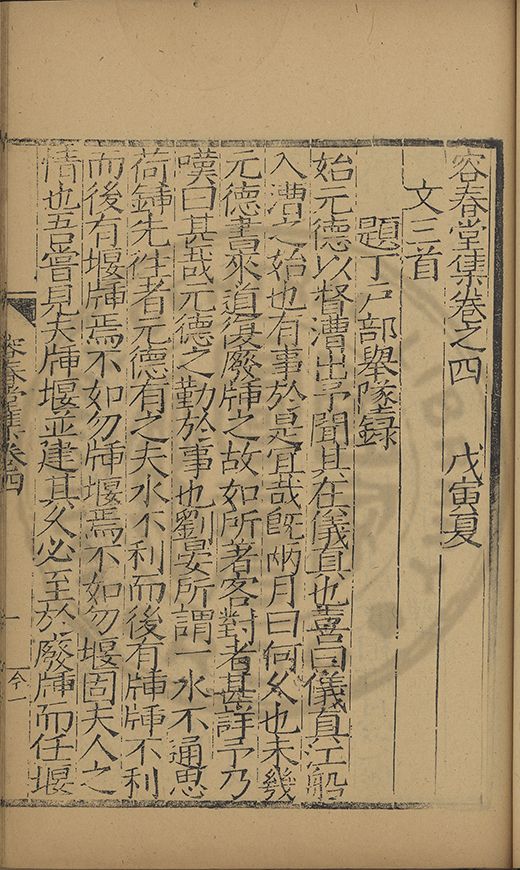 容春堂集卷之四　戊寅夏
文三首
題丁戶部舉隊錄
始元德以督漕出予聞其在儀真也喜曰儀真江船
入漕之始也有事於是宜哉既兩月曰何久也未幾
元德書來道復廢牐之故如所著客對者甚詳予乃
嘆曰甚哉元德之勤於事也劉晏所謂一水不通思
荷鍤先往者元德有之夫水不利而後有牐牐不利
而後有堰牐焉不如勿牐堰焉不如勿堰固夫人之
情也吾嘗見夫牐堰並建其久必至於廢牐而任堰
容春堂集卷四
一